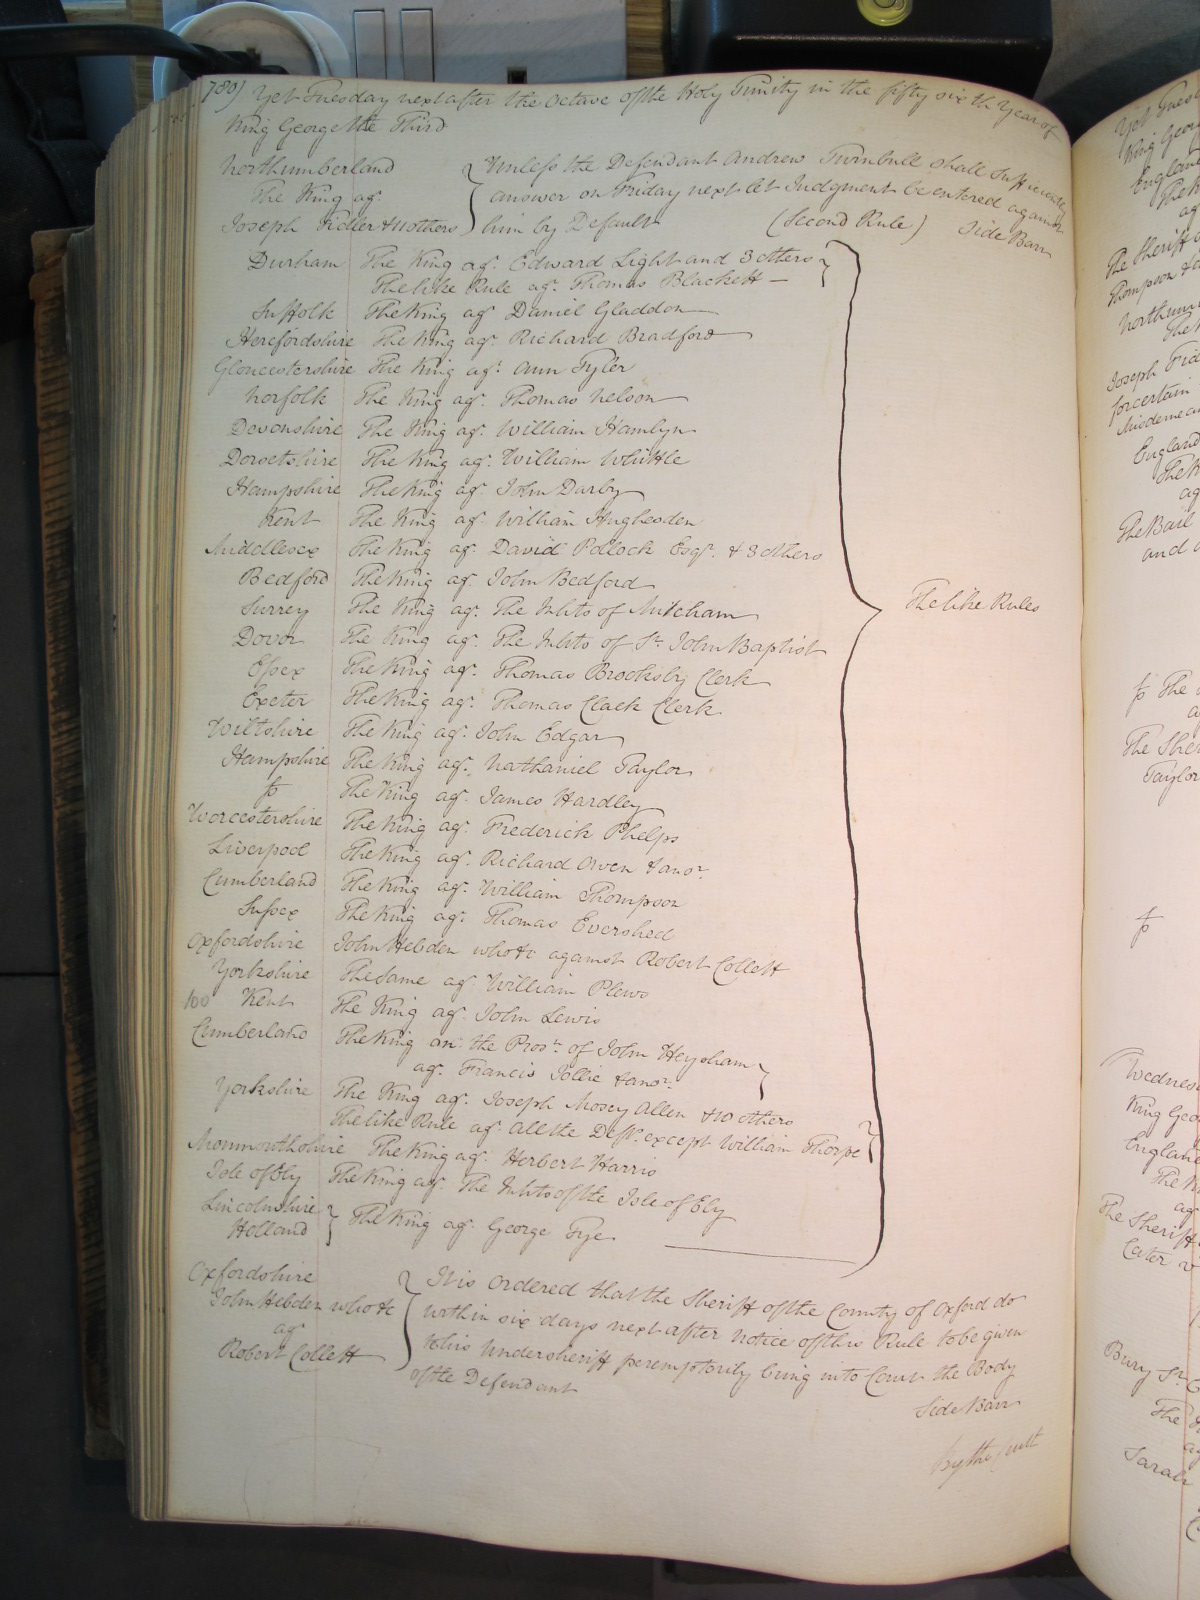 789) Yet Tuesday next after the Octave of the Holy Trinity in the fifty sixth Year of
King George the Third
Northumberland
The King agt.
Joseph Fidler & 11 others
Unless the Defendant Andrew Turnbull shall sufficiently
answer on Friday next let Judgment be entered against
him by Default (Second Rule) Side Barr
Durham The King agt. Edward Light and 3 others
The like Rule agt. Thomas Blackett
Suffolk The King agt. Daniel Gladdon
Herefordshire The King agt. Richard Bradford
Gloucestershire The King agt. Ann Tyler
Norfolk The King agt. Thomas Nelson
Devonshire The King agt. William Hamlyn
Dorsetshire The King agt. William Whittle
Hampshire The King agt. John Darby
Kent The King agt. William Hughesden
Middlesex The King agt. David Pollock Esqr. & 3 others
Bedford The King agt. John Bedford
Surrey The King agt. The Inhts of Mitcham
The like Rules
Dover The King agt. The Inhts of St. John Baptist
Essex The King agt. Thomas Brooksby Clerk
Exeter The King agt. Thomas Clack Clerk
Wiltshire The King agt. John Edgar
Hampshire The King agt. Nathaniel Taylor
fs The King agt. James Hardley
Worcestershire The King agt. Frederick Phelps
Liverpool The King agt. Richard Owen & anor.
Cumberland The King agt. William Thompson
Sussex The King agt. Thomas Evershed
Oxfordshire John Hebden who &c against Robert Collett
Yorkshire The Same agt. William Plews
100 Kent The King agt. John Lewis
Cumberland The King on the Prosn. of John Heysham
agt. Francis Jollie & anor.
Yorkshire The King agt. Joseph Mosey Allen & 10 others
The like Rule agt. all the Defts. except William Thorpe
Monmouthshire The King agt. Herbert Harris
Isle of Ely The King agt. The Inhts of the Isle of Ely
Lincolnshire
Holland The King agt. George Tye
Oxfordshire
John Hebden who &c
agt
Robert Collett
It is ordered that the Sheriff of the County of Oxford do
within six days next after notice of this Rule to be given
to his Undersheriff peremptorily bring into Court the Body
of the Defendant
Side Barr
By the Court
Yet Tuesd
King Geor
England
The K
ag
The Sheriff
Thompson &
Northum
The K
Joseph Fid
for certain
Misdemea
England
The K
ag
The Bail
and
fs The
ag
The Sher
Taylor
fs
Wednes
King Geo
England
The K
ag
The Sheriff
Cater v
Bury St.
The
ag
Sarah